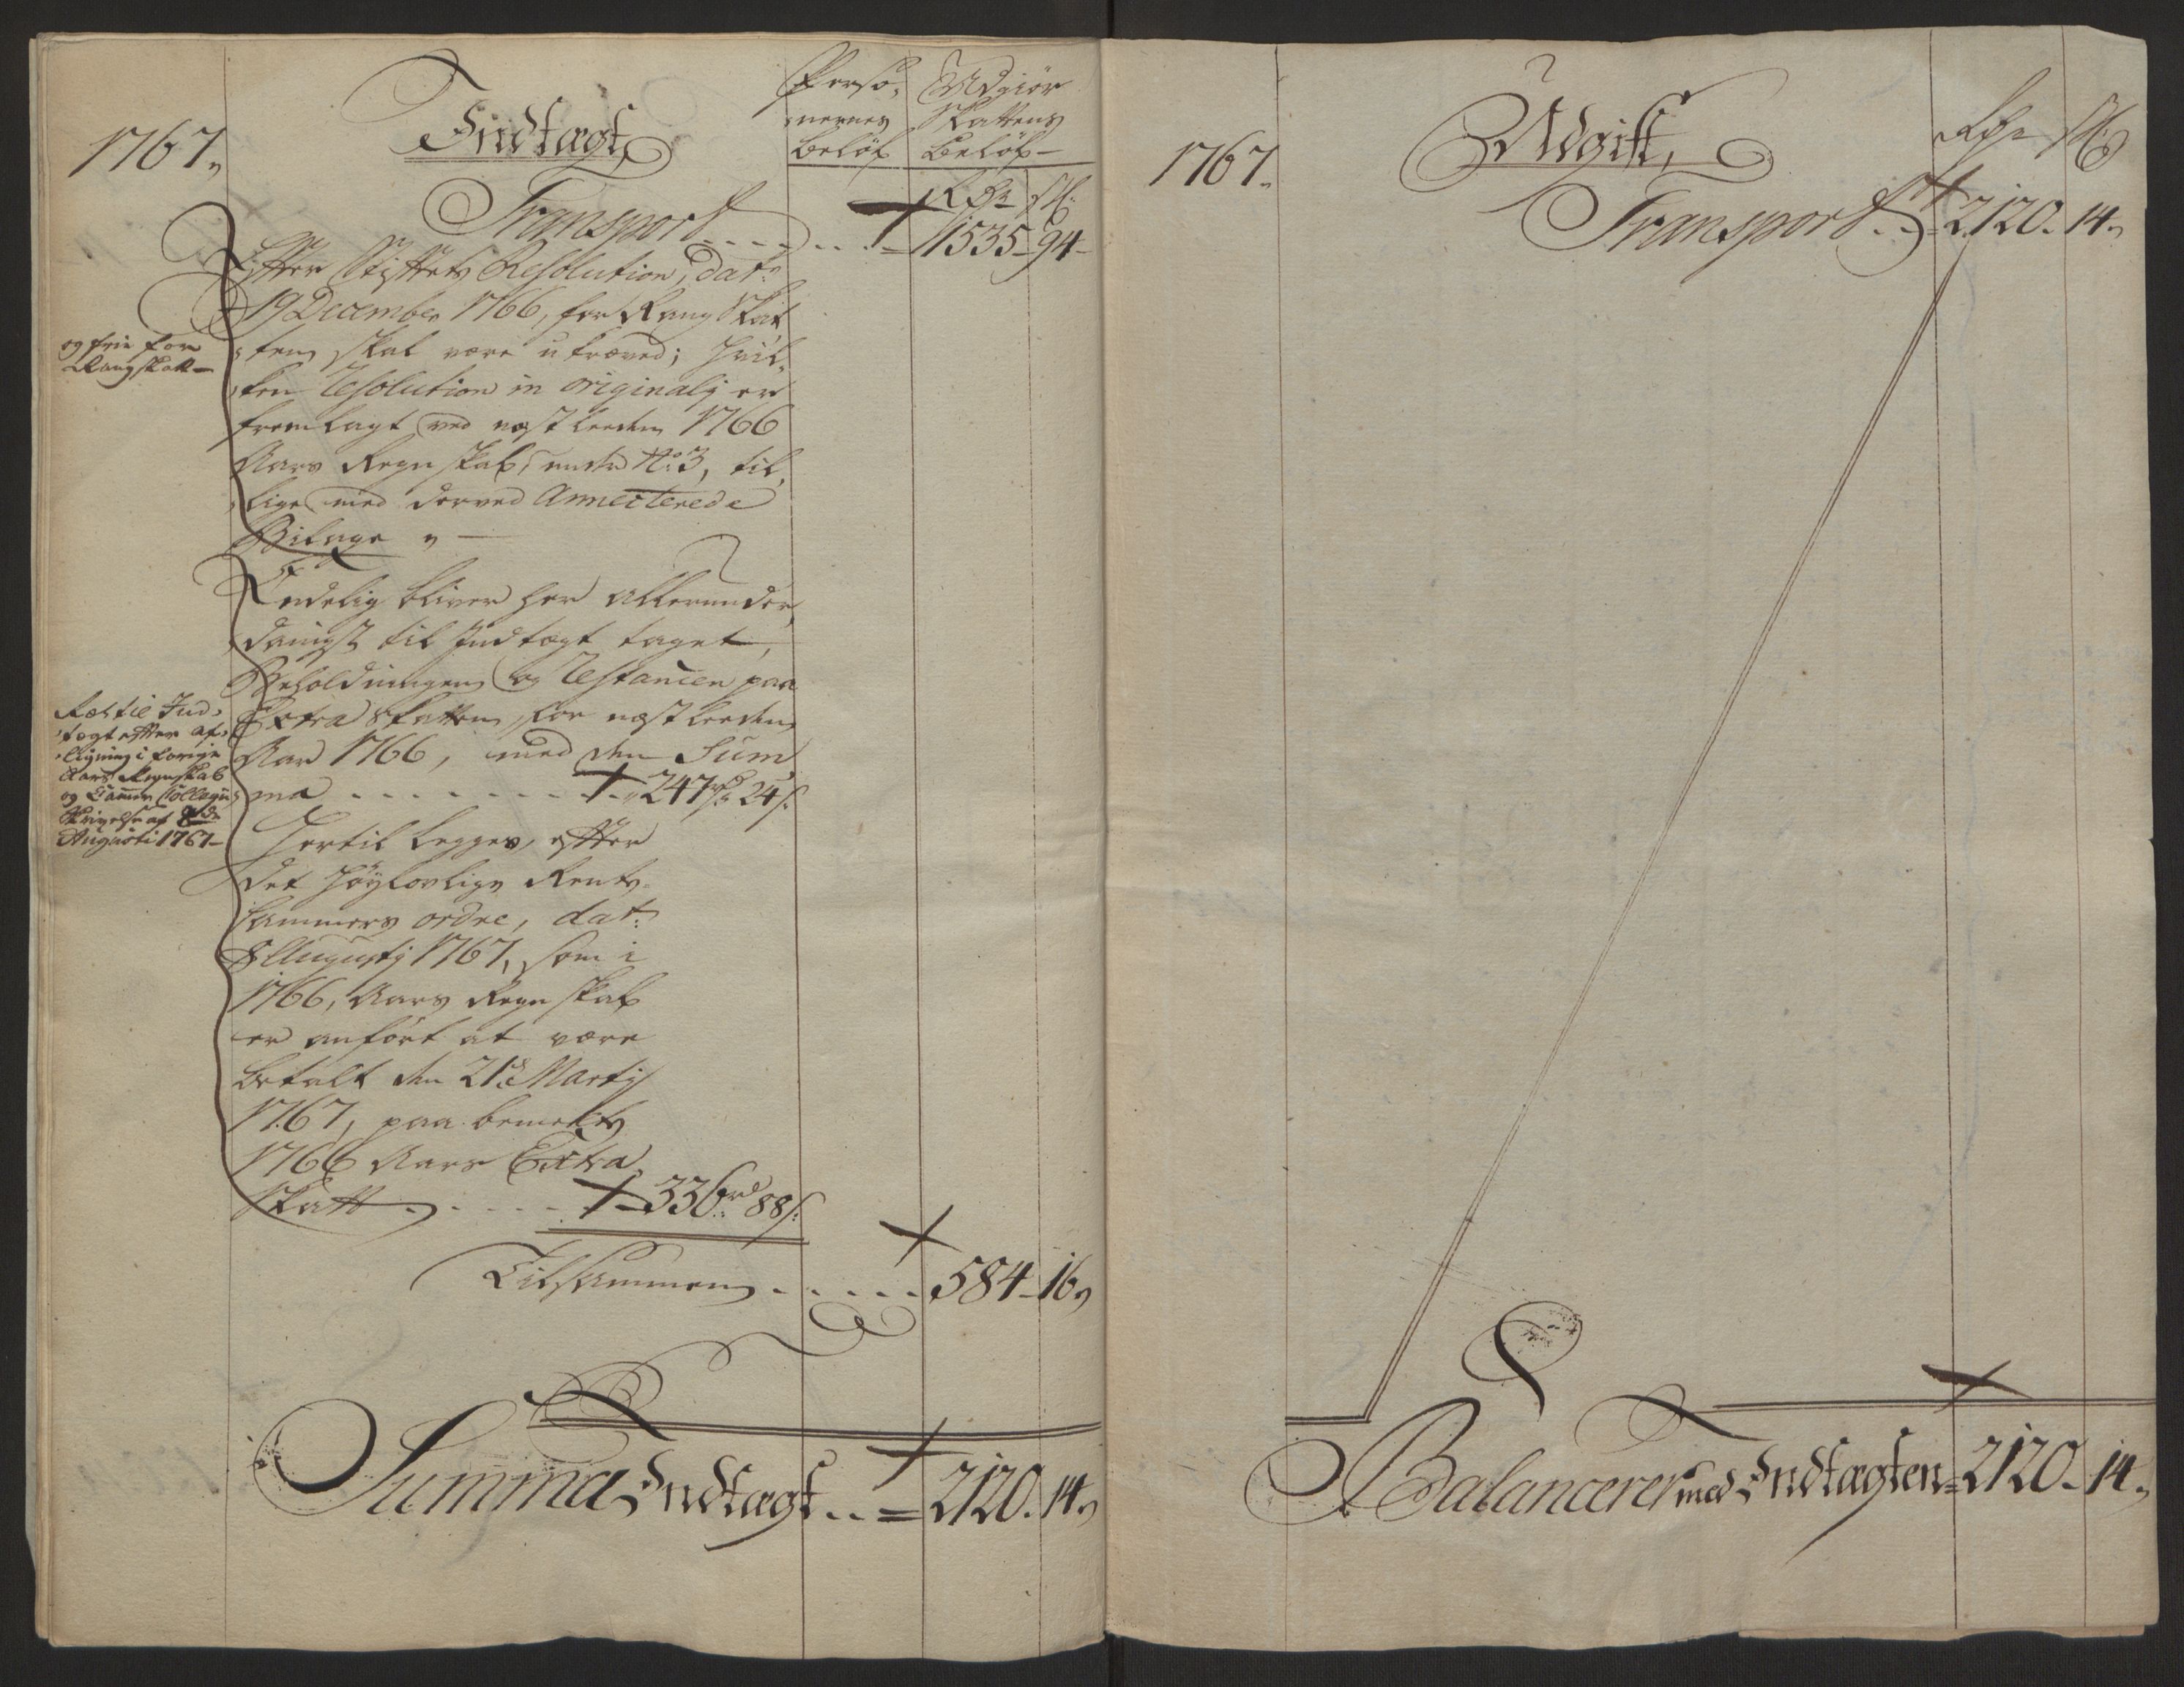 1767,
Indtægt
Perso-
nernes
beløb
Udgiör
Skattens
Beløb
Rdr ß
Transport 1535 - 94 -
Efter Stiftets Resolution, dat:
19 December 1766, for Rang Skat
ten skal være ukræved; hvil-
ken Resolution in originali er
fremlagt ved næstleeden 1766
Aars Regnskab, under No. 3, til-
lige med derved Annecterede
Bilage
og frie for
Rangskatt -
Endelig bliver her allerunder-
danigst til Indtægt taget,
Beholdningen og Restancen paa
Extra Skatten, for næstleeden
Aar 1766, med den Sum
ma 247 rdr 24 ß
Indtægt efter af-
ligning i forige
Aars Regnskab
og Cammer Collegii
Skrivelse af 8de
Augusti 1767 -
Hertil legges, efter
det Höylovlige Rente-
kammers ordre, dat:
8 Augustj 1767, som i
1766, Aars Regnskab
er anført at være
betalt den 21de Martij
1767, paa bemelte
1766 Aars Extra
Skatt 336 rd 88 ß
Tilsammen 584 - 16,
Summa Indtægt = 2120. 14,
1767.
Udgift,
Rdr ß
Transport 2120. 14,
Balancerer med Indtægten = 2120. 14,